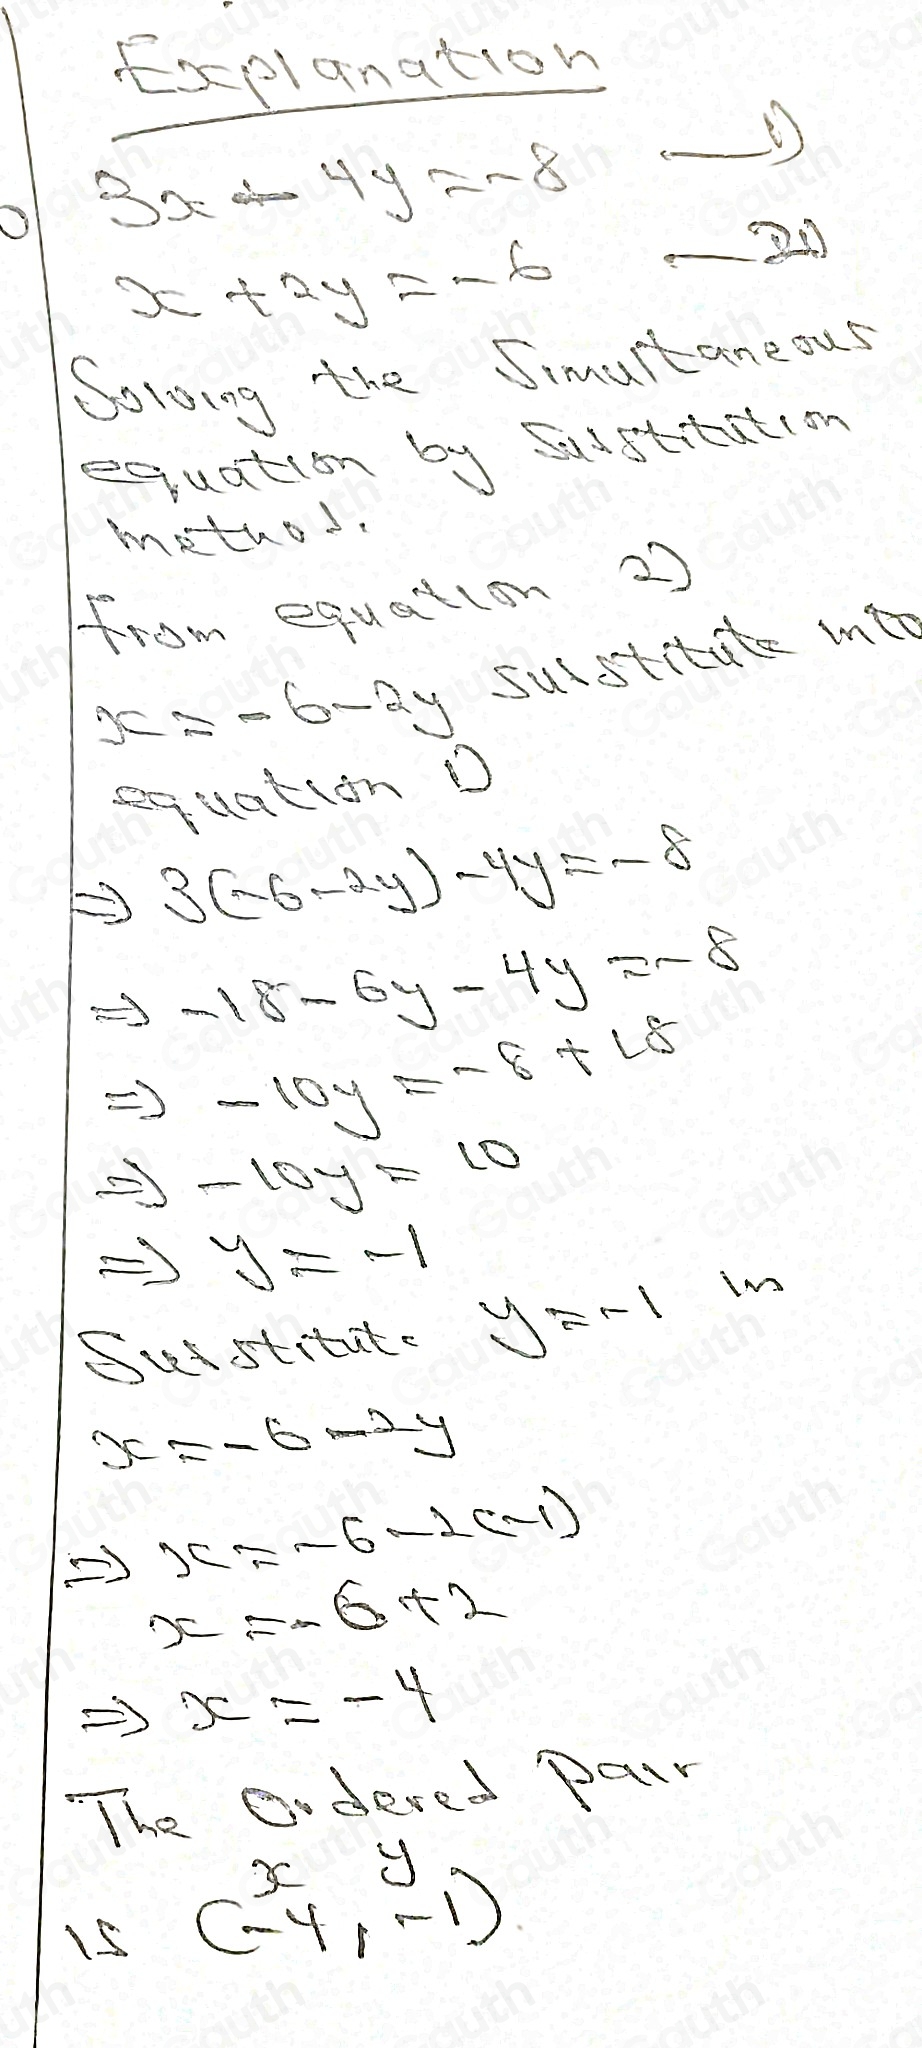 Explanation
3x - 4y = -8 — 1)
x + 2y = -6 — 2)
Solving the Simultaneous
equation by Substitution
method.
from equation 2)
x = -6-2y substitute into
equation 1)
⇒ 3(-6-2y) -4y = -8
⇒ -18 - 6y - 4y = -8
⇒ -10y = -8 + 18
⇒ -10y = 10
⇒ y = -1
Substitute y = -1 in
x = -6 - 2y
⇒ x = -6 - 2(-1)
x = -6 + 2
⇒ x = -4
The Ordered Pair
x y
is (-4, -1)